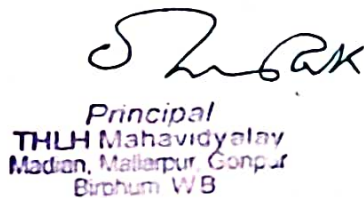 Principal
THLH Mahavidyalay
Madian, Mallarpur, Gonpur
Birbhum WB